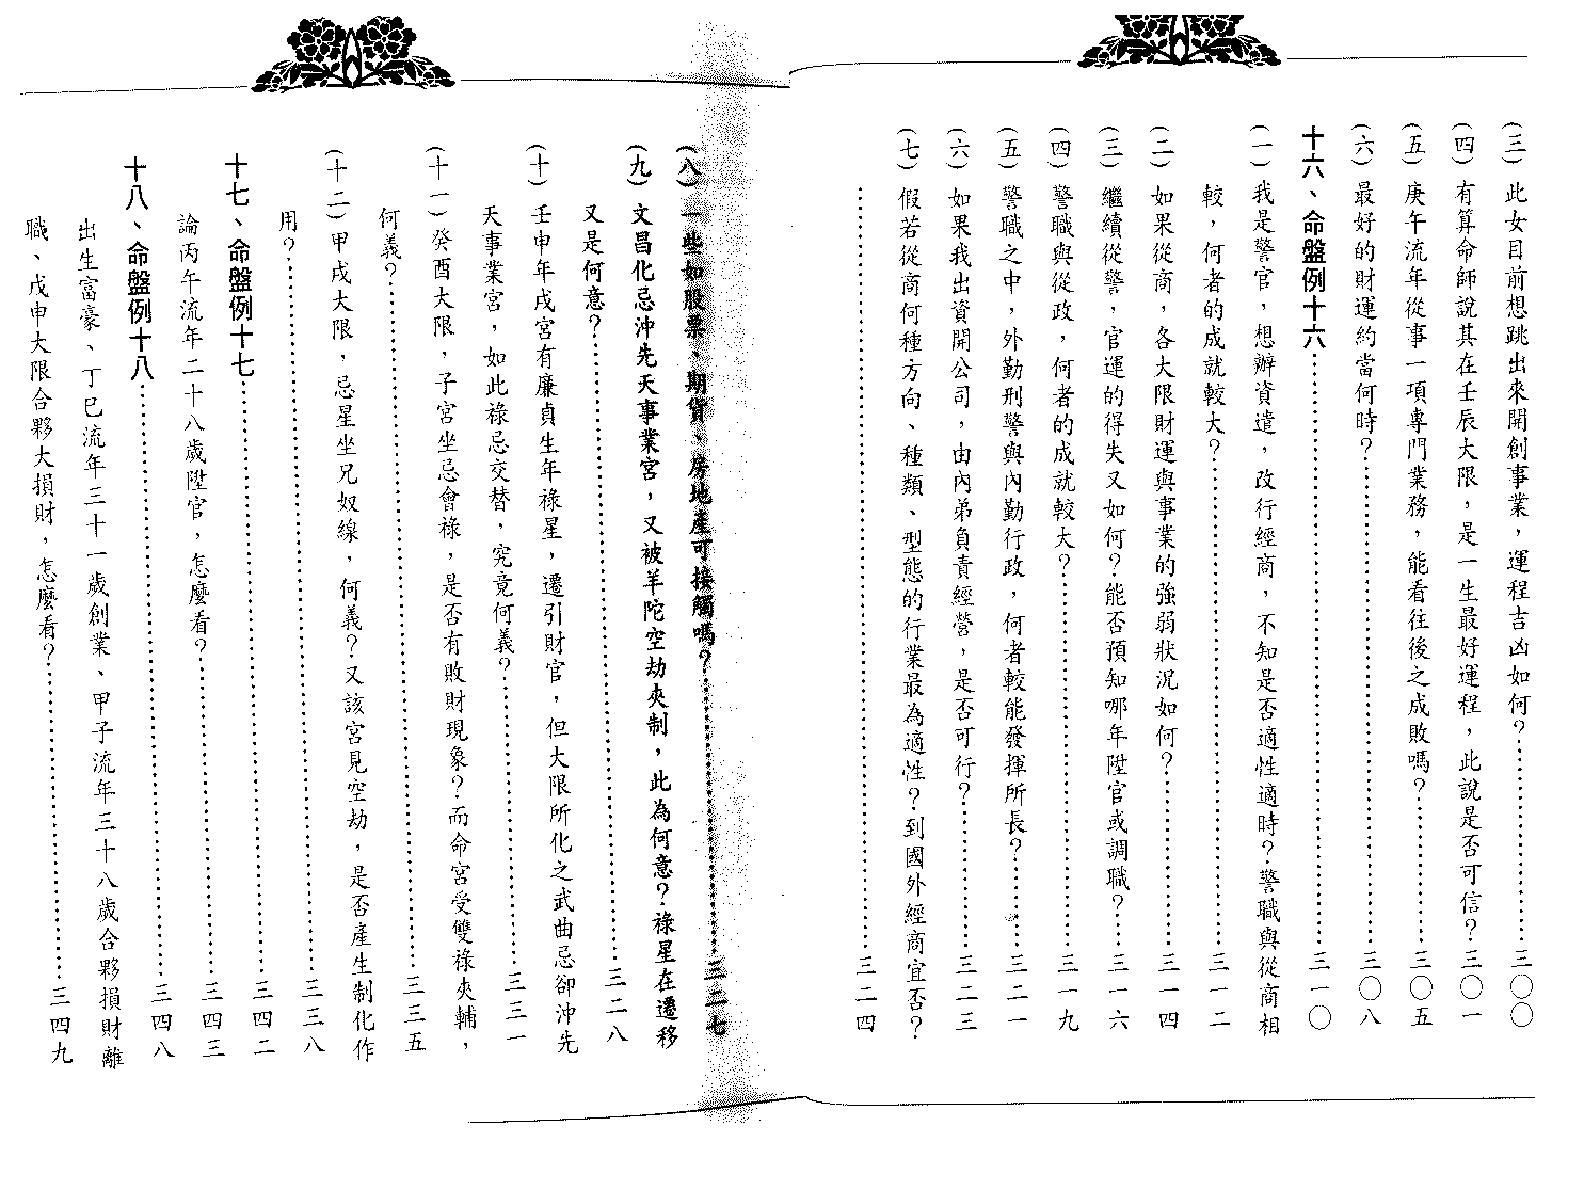 (三) 此女目前想跳出來開創事業，運程吉凶如何？……三〇〇
(四) 有算命師說其在壬辰大限，是一生最好運程，此說是否可信？…三〇一
(五) 庚午流年從事一項專門業務，能看往後之成敗嗎？……三〇五
(六) 最好的財運約當何時？……三〇八
十六、命盤例十六……三一〇
(一) 我是警官，想辦資遣，改行經商，不知是否適性適時？警職與從商相
較，何者的成就較大？……三一二
(二) 如果從商，各大限財運與事業的強弱狀況如何？……三一四
(三) 繼續從警，官運的得失又如何？能否預知哪年陞官或調職？…三一六
(四) 警職與從政，何者的成就較大？……三一九
(五) 警職之中，外勤刑警與內勤行政，何者較能發揮所長？……三二一
(六) 如果我出資開公司，由內弟負責經營，是否可行？……三二三
(七) 假若從商何種方向、種類、型態的行業最為適性？到國外經商宜否？
……三二四
(八) 一些如股票、期貨、房地產可接觸嗎？……三二七
(九) 文昌化忌沖先天事業宮，又被羊陀空劫夾制，此為何意？祿星在遷移
又是何意？……三二八
(十) 壬申年戌宮有廉貞生年祿星，遷引財官，但大限所化之武曲忌卻沖先
天事業宮，如此祿忌交替，究竟何義？……三三一
(十一) 癸酉大限，子宮坐忌會祿，是否有敗財現象？而命宮受雙祿夾輔，
何義？……三三五
(十二) 甲戌大限，忌星坐兄奴線，何義？又該宮見空劫，是否產生制化作
用？……三三八
十七、命盤例十七……三四二
論丙午流年二十八歲陞官，怎麼看？……三四三
十八、命盤例十八……三四八
出生富豪、丁巳流年三十一歲創業、甲子流年三十八歲合夥損財離
職、戊申大限合夥大損財，怎麼看？……三四九